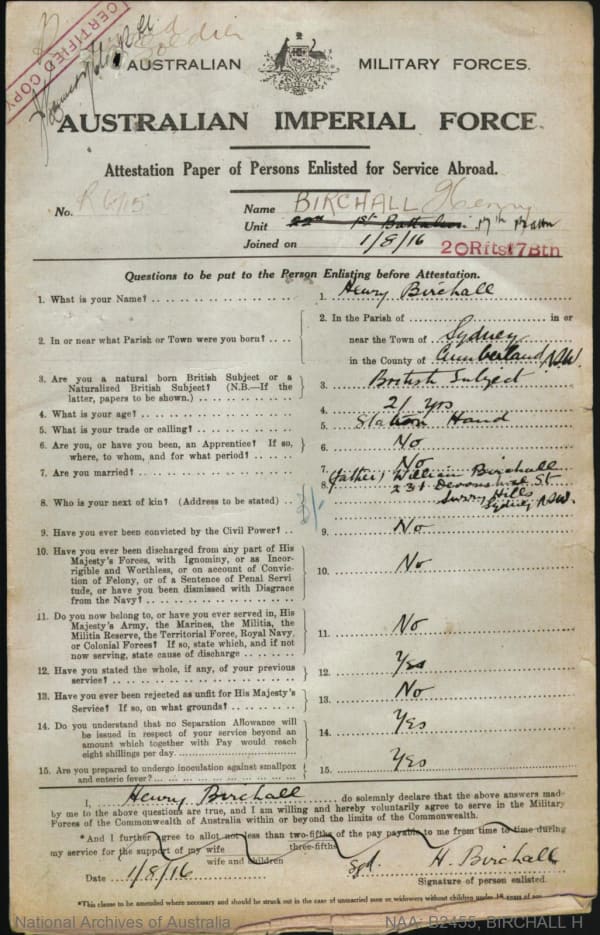 CERTIFIED COPY
Soldier
AUSTRALIAN MILITARY FORCES.
AUSTRALIAN IMPERIAL FORCE.
Attestation Paper of Persons Enlisted for Service Abroad.
No. R6715 Name BIRCHALL Henry
Unit 1st Battalion 17th Battn
Joined on 1/8/16 20Rfts17Btn
Questions to be put to the Person Enlisting before Attestation.
1. What is your Name? 1. Henry Birchall
2. In or near what Parish or Town were you born? 2. In the Parish of in or
near the Town of Sydney
in the County of Cumberland NSW.
3. Are you a natural born British Subject or a
Naturalized British Subject? (N.B.—If the
latter, papers to be shown.) 3. British Subject
4. What is your age? 4. 21 yrs
5. What is your trade or calling? 5. Station Hand
6. Are you, or have you been, an Apprentice? If so,
where, to whom, and for what period? 6. No
7. Are you married? 7. No
8. Who is your next of kin? (Address to be stated) 8. (father) William Birchall
231 Devonshire St
Surry Hills
Sydney NSW.
9. Have you ever been convicted by the Civil Power? 9. No
10. Have you ever been discharged from any part of His
Majesty's Forces, with Ignominy, or as Incor-
rigible and Worthless, or on account of Convic-
tion of Felony, or of a Sentence of Penal Servi
tude, or have you been Dismissed with Disgrace
from the Navy? 10. No
11. Do you now belong to, or have you ever served in, His
Majesty's Army, the Marines, the Militia, the
Militia Reserve, the Territorial Force, Royal Navy,
or Colonial Forces? If so, state which, and if not
now serving, state cause of discharge 11. No
12. Have you stated the whole, if any, of your previous
service? 12. Yes
13. Have you ever been rejected as unfit for His Majesty's
Service? If so, on what grounds? 13. No
14. Do you understand that no Separation Allowance will
be issued in respect of your service beyond an
amount which together with Pay would reach
eight shillings per day. 14. Yes
15. Are you prepared to undergo inoculation against smallpox
and enteric fever? 15. Yes
I, Henry Birchall do solemnly declare that the above answers made
by me to the above questions are true, and I am willing and hereby voluntarily agree to serve in the Military
Forces of the Commonwealth of Australia within or beyond the limits of the Commonwealth.
*And I further agree to allot not less than two-fifths of the pay payable to me from time to time during
three-fifths
my service for the support of my wife
wife and children
Date 1/8/16 Sgd. H. Birchall
Signature of person enlisted.
*This clause to be amended where necessary and should be struck out in the case of unmarried men or widowers without children under 18 years of age.
National Archives of Australia NAA: B2455, BIRCHALL H